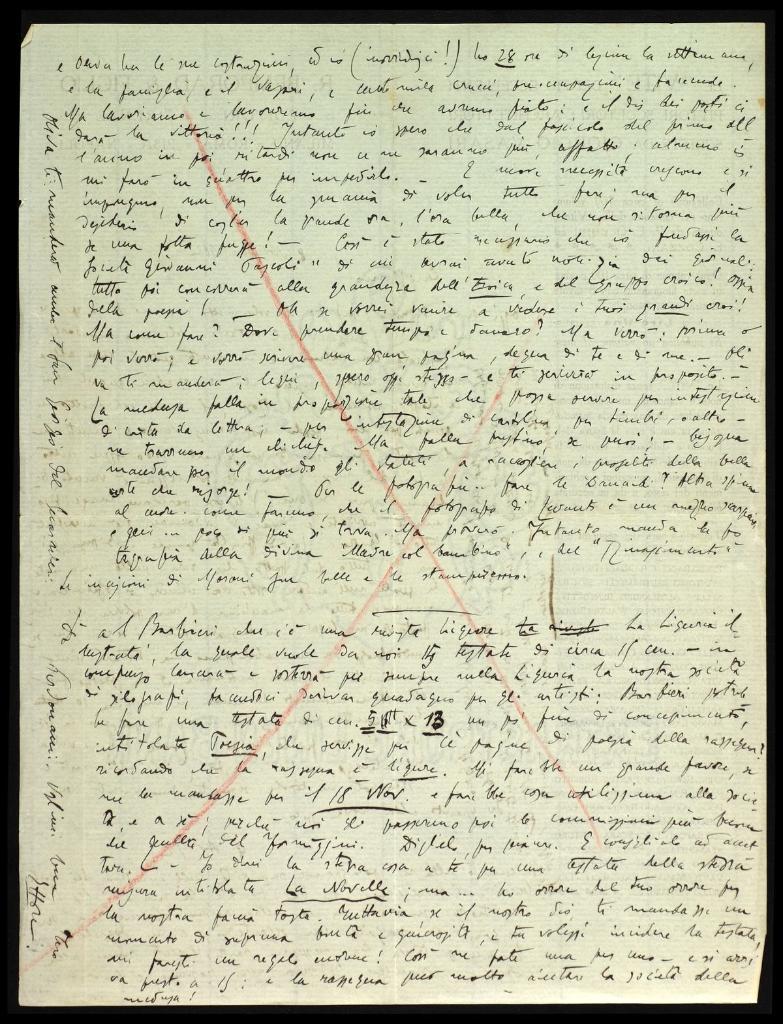 e Oliva ha le sue costruzioni, ed io (inorridisci!) ho 28 ore di lezione la settimana,
e la famiglia, e il Vajeri, e cento mila crucci, preoccupazioni e faccende.
Ma lavoriamo e lavoreremo fin che avremo fiato: e il dio dei poeti ci
darà la vittoria!!! Intanto io spero che dal fascicolo del primo dell'
l'anno in poi ritardi non ce ne saranno più, affatto: almeno io
mi farò in quattro per impedirlo. — E nuove necessità crescono e si
impongono, non per la smania di voler tutto fare; ma per il
desiderio di coglier la grande ora, l'ora bella, che non ritorna più
se una volta fugge! — Così è stato necessario che io fondassi la
Società "Giovanni Pascoli" di cui avrai avuto notizia dai giornali:
tutto poi concorrerà alla grandezza dell'Eroica, e del gruppo eroico! Oggi
della poesia! Oh se vorrei venire a vedere i tuoi grandi eroi!
Ma come fare? Dove prendere tempo e danaro? Ma verrò: prima o
poi verrò; e vorrò scrivere una gran pagina, degna di te e di me. — Oli
va ti manderà: leggi, spero oggi stesso — e ti scriverà in proposito. —
La medusa falla in proporzione tale che possa servire per intestazione
di carta da lettera; — per intestazione di cartolina per timbri, o altro
ne trarremo un clichè. Ma falla prestino, se puoi! — bisogna
mandare per il mondo gli statuti, a raccogliere i proseliti della bella
arte che risorge! Per le fotografie.. fare le Danaidi? Altra spina
al cuore. come faremo, che il fotografo di Levanto è un mezzo
e qui.. poco di più si trova. Ma proverò. Intanto manda la fo
tografia della divina "Madre col bambino", e del "Rinascimento"
Le incisioni di Moroni son belle e le stamperemo.
Di' a l Barbieri che c'è una rivista ligure La Liguria il
lustrata, la quale vuole da noi 15 testate di circa 15 cen. — in
compenso lancerà e sosterrà per sempre nella Liguria la nostra società
di xilografi, facendoci derivar guadagno per gli artisti: Barbieri potreb
be fare una testata di cen. 5 × 13 un po' fine di concepimento,
intitolata Poesia, che servisse per le pagine di poesia della rassegna?
ricordando che la rassegna è ligure. Mi farebbe un grande favore, se
me la mandasse per il 18 Nov. e farebbe cosa utilissima alla socie
tà, e a sè, perchè noi gli passeremo poi le commissioni più buone
che quelle del Formiggini. Diglielo per piacere. E consiglialo ad accet
tare. — Io darei la stessa cosa a te per una testata della stessa
misura intitolata La Novella; ma... ho orrore del tuo orrore per
la nostra faccia tosta. Tuttavia se il nostro dio ti mandasse un
momento di suprema bontà e generosità, e tu volessi incidere la testata,
mi faresti un regalo enorme! Così ne fate una per uno — e si arri
va presto a 15: e la rassegna può molto aiutare la società della
medusa!
Oliva ti manderà anche il San Giorgio del
Perdonami. Voglimi bene
tuo
Ettore.